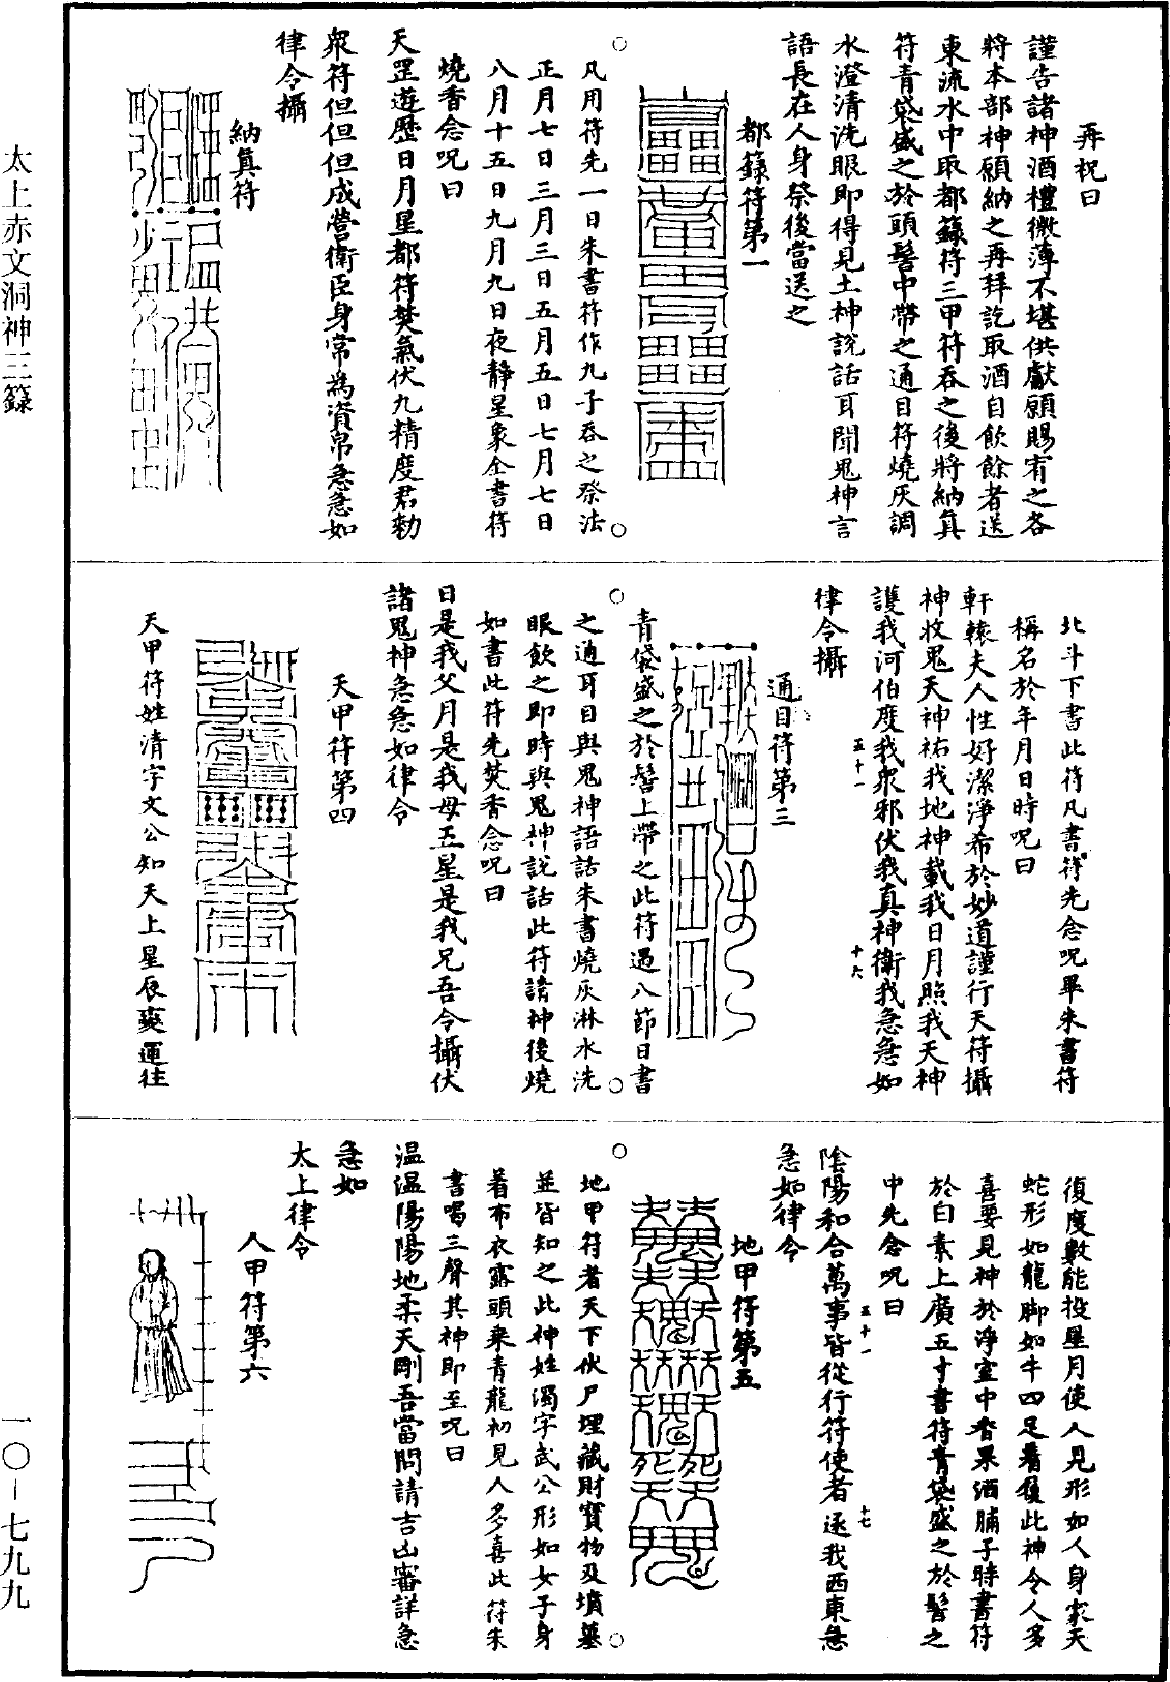 再祝曰
謹告諸神酒禮微薄不堪供獻願賜宥之各
將本部神願納之再拜訖取酒自飲餘者送
東流水中取都籙符三甲符吞之後將納真
符青袋盛之於頭髻中帶之通目符燒灰調
水澄清洗眼即得見土神說話耳聞鬼神言
語長在人身祭後當送之
都籙符第一
凡用符先一日朱書符作九子吞之祭法
正月七日三月三日五月五日七月七日
八月十五日九月九日夜靜星象全書符
燒香念呪曰
天罡遊歷日月星都符焚氣伏九精度君勑
眾符但但但成營衛臣身常為資帛急急如
律令攝
納真符
北斗下書此符凡書符先念呪畢朱書符
稱名於年月日時呪曰
軒轅夫人性好潔淨希於妙道謹行天符攝
神收鬼天神祐我地神載我日月照我天神
護我河伯度我眾邪伏我真神衛我急急如
律令攝
五十一
十六
通目符第三
青袋盛之於髻上帶之此符遇八節日書
之通耳目與鬼神語話朱書燒灰淋水洗
眼飲之即時與鬼神說話此符請神後燒
如書此符先焚香念呪曰
日是我父月是我母五星是我兄吾令攝伏
諸鬼神急急如律令
天甲符第四
天甲符姓清字文公知天上星辰變運往
復度數能投星月使人見形如人身衣天
蛇形如龍脚如牛四足著履此神令人多
喜要見神於淨室中香果酒脯子時書符
於白素上廣五寸書符青袋盛之於髻之
中先念呪曰
陰陽和合萬事皆從行符使者逐我西東急
急如律令
五十一
十七
地甲符第五
地甲符者天下伏尸埋藏財寶物及墳墓
並皆知之此神姓濁字武公形如女子身
着布衣露頭乘青龍初見人多喜此符朱
書喝三聲其神即至呪曰
温温陽陽地柔天剛吾當問請吉凶審詳急
急如
太上律令
人甲符第六
太上赤文洞神三籙
一〇－七九九